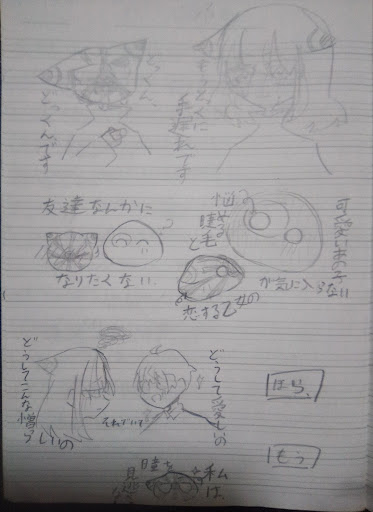 もうとっくに
手遅れです
どっくん、
どっくんです
可愛いあの子
が気に入らない
睫毛
と
恋する乙女の
友達なんかに
なりたくない
?
どうして愛しいの
それでいて
どうしてこんな憎ら
しいの
ほら、
もう
私
は、